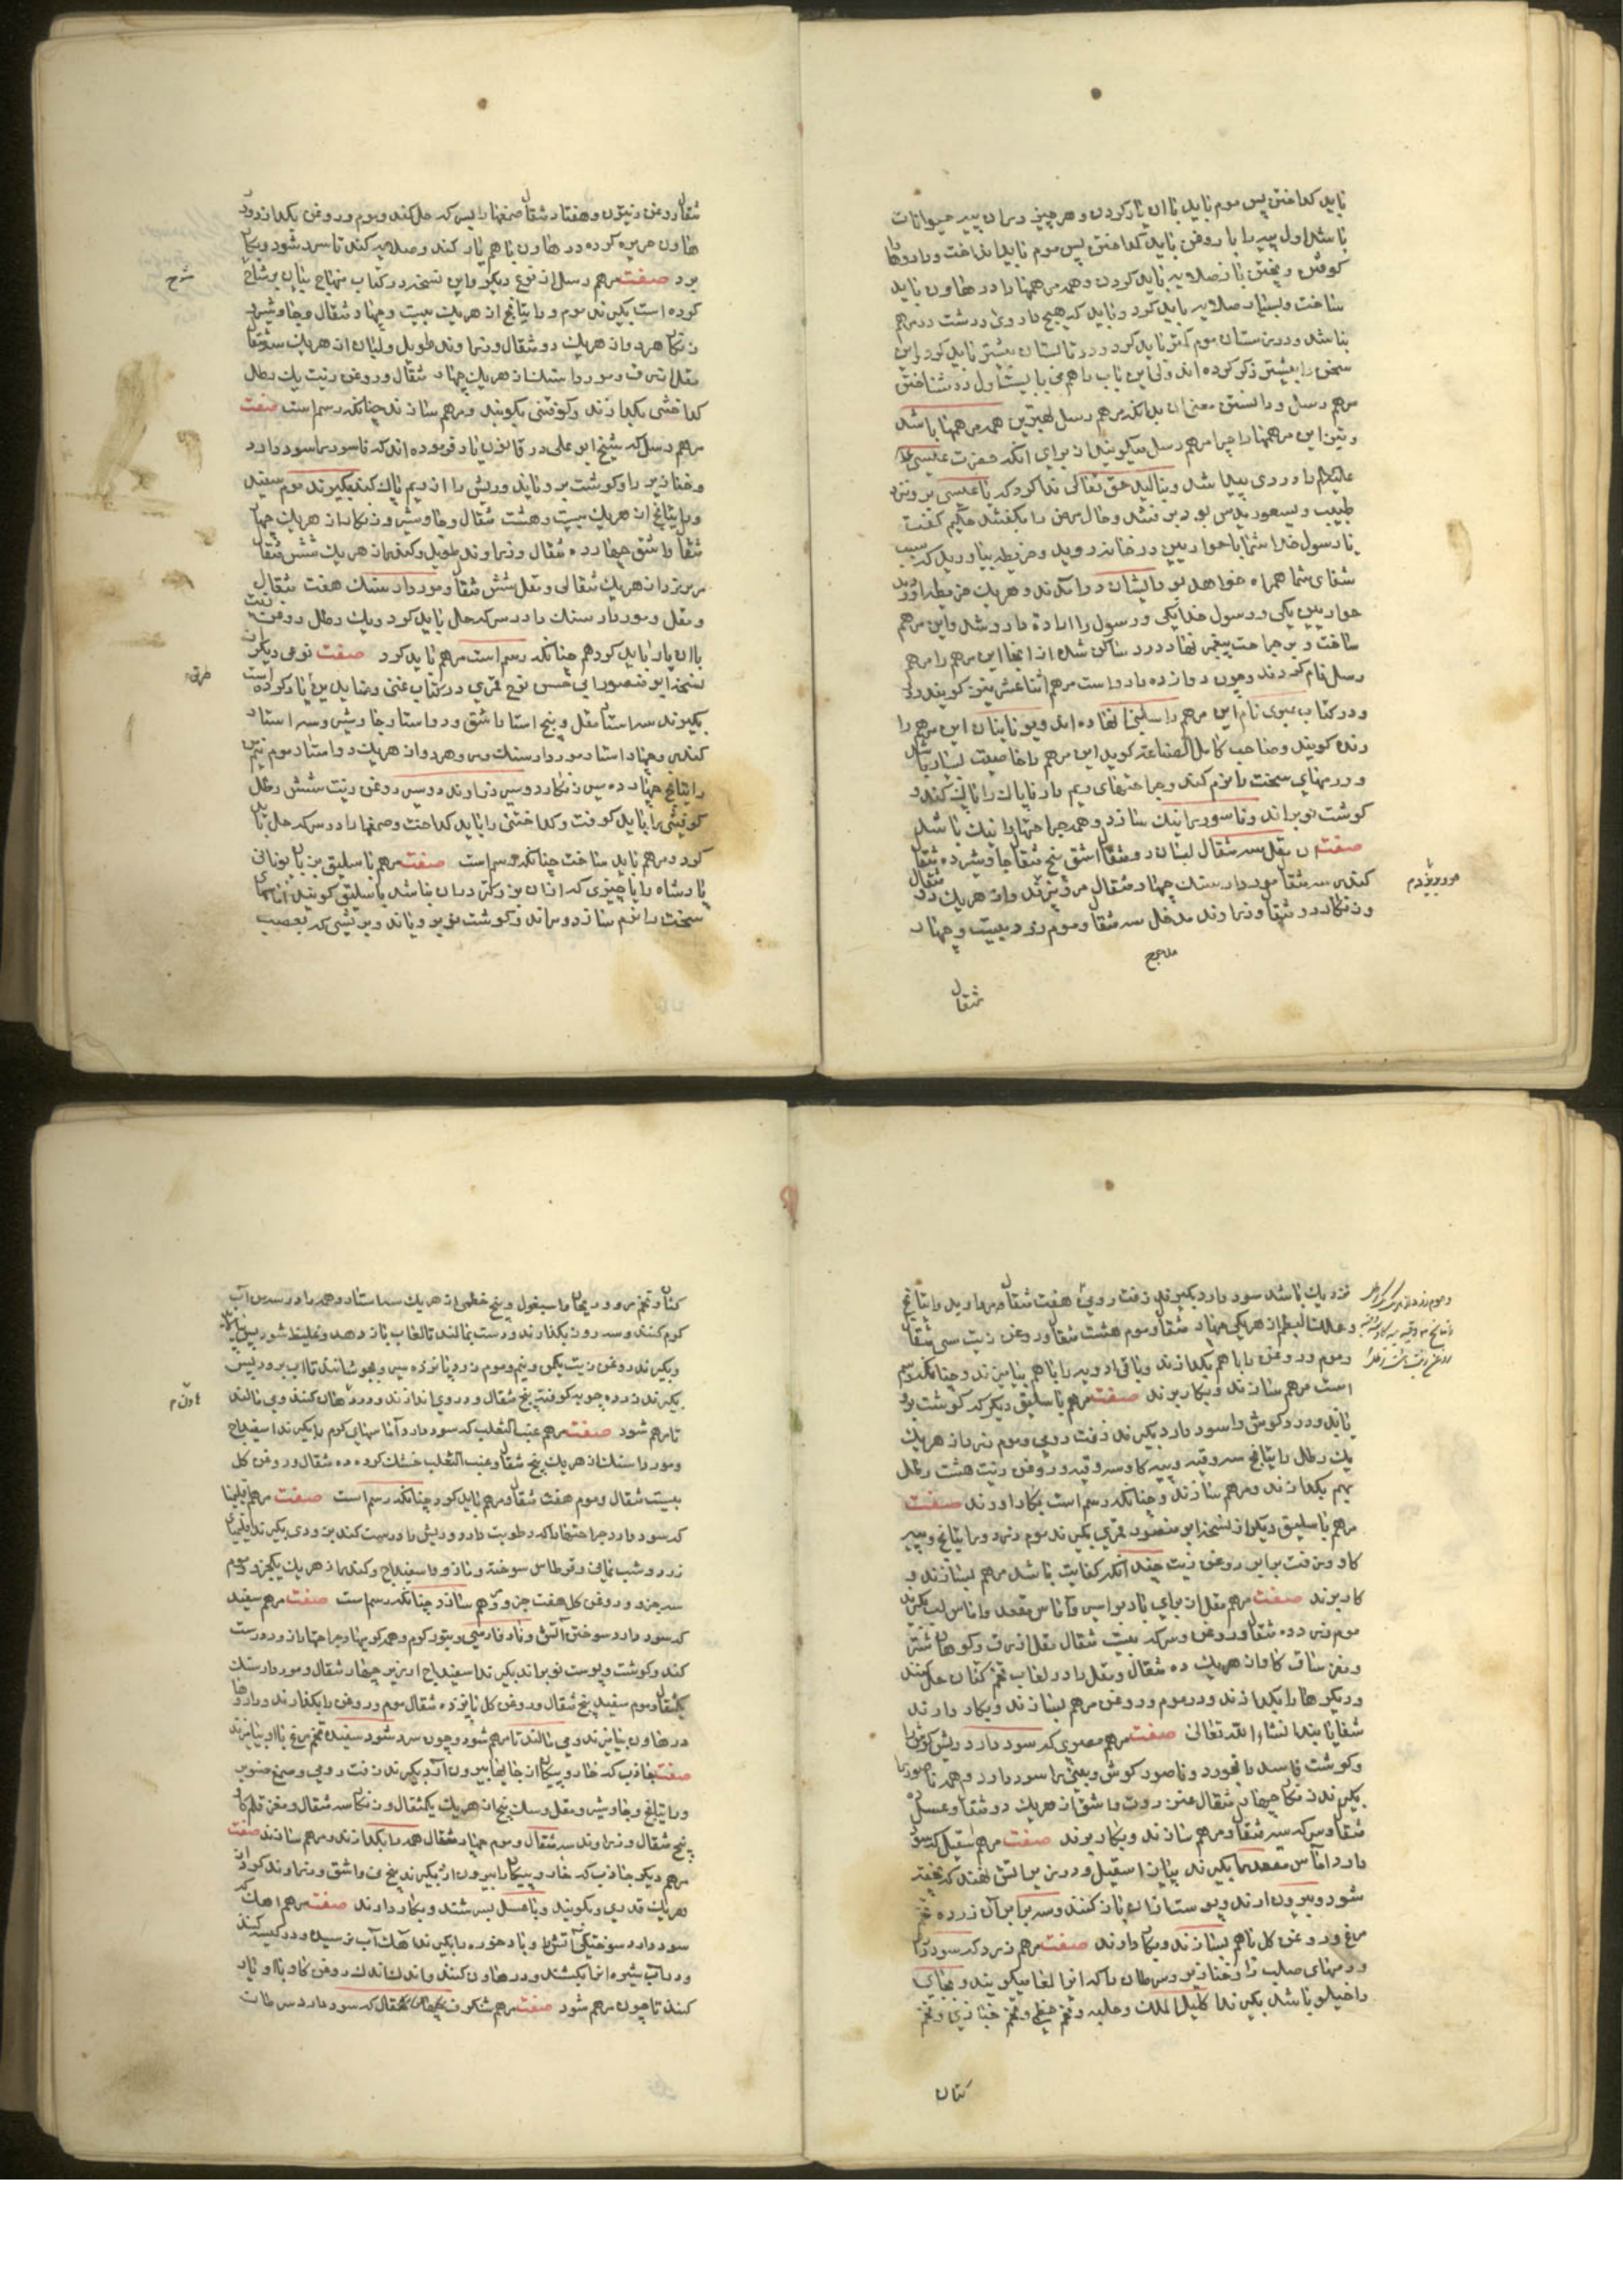 باید کداختن پس موم باید باان یارکردن وهر چیزی دران پیه حیوانات
باشد اول پیه را با روغن باید کداختن پس موم باید انداخت وداروها
کوفتن وبختن بازصلایه باید کردن وهمه مرهمها را در هاون باید
ساخت وبسیار صلایه باید کرد وباید که هیچ داروی درشت در مرهم
نباشد ودرزمستان موم کمتر باید کرد ودر تابستان بیشتر باید کرد واین
سخن را بیشتر ذکر کرده اند ولی این باب را هم می بایست اول در شناختن
مرهم رسل ودانستن معنی ان بدانکه مرهم رسل بهترین همه مرهمها باشد
وتین این مرهمها را چرا مرهم رسل میکویند از برای انکه حضرت عیسی
علیه السلام را دردی پیدا شد وبنالید حق تعالی ندا کرد که یا عیسی برو نزد
طبیب
یا رسول خدا شما باحواریین در خانه روید وخریطه بیاورید که سبب
شفای شما همراه خواهد بود ایشان دوانکدند وهر یک خریطه اورد
حواریین یکی ورسول خدا یکی ورسول را اراده دارو شد واین مرهم
ساخت وبر جراحت پیغمبر نهاد درد ساکن شد از انجا این مرهم را مرهم
رسل نام کردند وچون دوازده داروست مرهم اثناعشر نیز کویند
ودر کتاب عبری نام این مرهم را سلیخا نهاده اند ویونانیان این مرهم را
رنده کویند وصاحب کامل الصناعه کوید این مرهم را خاصیت بسیار باشد
وورمهای سخت را نرم کند وجراحتهای ریم دار ناپاک را پاک کند و
کوشت نو براند وناسور را نیک سازد وهمه جراحتها را نیک باشد
صفت ان مقل سه مثقال لبنان دو مثقال اشق پنج مثقال جاوشیر ده مثقال
کندر سه مثقال مردار سنک چهار مثقال وان هریک دو مثقال
وزنکار دو مثقال وزراوند مدخل سه مثقال وموم زرد بیست وچهار
مثقال
مثقال روغن زیتون وهفتاد مثقال صمغها را بسرکه حل کند وموم وروغن بکدازد ودر
هاون مربوه کرده در هاون باهم یار کند وصلایه کند تا سرد شود وبکار
برد صفت مرهم رسل از نوع دیکر واین نسخه در کتاب منهاج بیان
شرح
کرده است بکیرند موم وراتیانج از هریک بیست وچهار مثقال وجاوشیر
زنکار هر دو از هریک دو مثقال وزراوند طویل ولبان از هریک سه مثقال
مقل ازرق ومردار سنک از هریک چهار مثقال وروغن زیت یک رطل
کداختنی بکدازند وکوفتنی بکوبند ومرهم سازند چنانکه رسم است صفت
مرهم رسل که شیخ ابو علی در قانون یاد فرموده اند که ناسور را سود دارد
وخنازیر را وکوشت بر ویاند وریش را از ریم پاک کند بکیرند موم سفید
وراتیانج از هریک بیست وهشت مثقال وجاوشیر وزنکار از هریک چهار
مثقال واشق چهارده مثقال وزراوند طویل وکندر از هریک شش مثقال
از هریک مثقالی ومقل شش مثقال ومردار سنک هفت مثقال
ومقل ومردار سنک را در سرکه حل باید کرد ویک رطل روغن زیت
باان یار باید کرد هم چنانکه رسم است مرهم باید کرد صفت نوعی دیکر از
نسخه ابو منصور ابی حسن نوح قمری در کتاب غنی
بکیرند سه استار مقل وپنج استار اشق ودو استار جاوشیر وسه استار
کندر وچهار استار مردار سنک ومر وهر دو از هریک دو استار موم نیز
راتیانج چهارده سیر زنکار دو سیر زراوند دو سیر روغن زیت شش رطل
کوفتنی را باید کوفت وکداختنی را باید کداخت وصمغها را در سرکه حل باید
کرد ومرهم باید ساخت چنانکه رسم است صفت مرهم باسلیق بزبان یونانی
پادشاه را یا چیزی که از ان بزرکتر دران نباشد باسلیق کویند اماسهای
سخت را نرم سازد وبراند وکوشت نو برویاند که بعصب
نزدیک باشد سود دارد بکیرند زفت رومی هفت مثقال وراتیانج
وعلک البطم از هریکی چهار مثقال وموم هشت مثقال وروغن زیت سی مثقال
وموم وروغن را باهم بکدازند وباقی ادویه را باهم بیامیزند وچنانکه رسم
است مرهم سازند وبکار برند صفت مرهم باسلیق دیکر که کوشت برو
یاند ودرد کوش را سود دارد بکیرند زفت رومی وموم زرد از هریک
یک رطل راتیانج سه وقیه وپیه کاو سه وقیه وروغن زیت هشت رطل
بهم بکدازند ومرهم سازند وچنانکه رسم است بکار اورند صفت
مرهم باسلیق دیکر از نسخه ابو منصور قمری بکیرند موم زرد وراتیانج وپیه
کاو وزفت برابر روغن زیت چندانکه کفایت باشد مرهم بسازند و
کار برند صفت مرهم مقل از برای باد بواسیر واماس مقعد واماس لب بکیرند
موم زرد ده مثقال وروغن وسرکه بیست مثقال مقل ازرق وکوهان شتر
ومغز ساق کاو از هریک ده مثقال ومقل را در لعاب تخم کتان حل کنند
ودیکرها را بکدازند ودر موم وروغن مرهم بسازند وبکار دارند
شفا یابند انشاء الله تعالی صفت مرهم مصری که سود دارد ریش کوش را
وکوشت فاسد را بخورد وناصور کوش وبینی را سود دارد وهمه ناصورها
بکیرند زنکار چهار مثقال عنزروت واشق از هریک دو مثقال وعسل ده
مثقال وسرکه سه مثقال ومرهم سازند وبکار برند صفت مرهم اسقیل که سود
دارد اماس مقعد را بکیرند پیاز اسقیل ودر زیر اتش نهند که پخته
شود وبیرون ارند وپوست از ان باز کنند وسه برابر ان زرده تخم
مرغ وروغن کل باهم بسازند وبکار دارند صفت مرهم زرد که سود دارد
ورمهای صلب را وخنازیر وسرطان را که انرا لغا میکویند وبجای
داخیلو باشد بکیرند اکلیل الملک وحلبه وتخم خطمی وتخم خبازی وتخم
کتان
کتان وتخم مرو وریحان واسبغول وبیخ خطمی از هریک سه استار وهمه را در سه من آب
کرم کنند وسه روز بکذارند ودرست بمالند تا لعاب باز دهد وغلیظ شود
وبکیرند روغن زیت یکمن ونیم وموم زرد پانزده سیر وبجوشانند تا اب برود پس
بکیرند زرده چوبه کوفته پنج مثقال ودر وی اندازند ودر هاون کنند ومی مالند
هاون
تا مرهم شود صفت مرهم عنب الثعلب که سود دارد آماسهای کرم را بکیرند اسفیداج
ومرداسنک از هریک پنج مثقال وعنب الثعلب خشک کرده ده مثقال وروغن کل
بیست مثقال وموم هفت مثقال ومرهم باید کرد چنانکه رسم است صفت مرهم اقلیمیا
که سود دارد جراحتها را که رطوبت دارد وریش را درست کند بزودی بکیرند اقلیمیا
زرد وشب یمانی وقرطاس سوخته ومازو واسفیداج وکندر از هریک یکجزو وموم
سه جزو وروغن کل هفت جزو ومرهم سازد چنانکه رسم است صفت مرهم سفید
که سود دارد سوختن آتش ونار فارسی وبثور کرم وهمه کریها وجراحتها را زود درست
کند وکوشت وپوست نو براند بکیرند اسفیداج ارزیز چهار مثقال ومردار سنک
یکمثقال وموم سفید پنج مثقال وروغن کل پانزده مثقال موم وروغن را بکدازند وداروها
در هاون بیامیزند ومی مالند تا مرهم شود وچون سرد شود سفیده تخم مرغ باان بیامیزند
صفت جاذب که خار وپیکان از جایها بیرون آرد بکیرند زفت رومی وصمغ صنوبر
وراتیانج وجاوشیر ومقل وسکبینج از هریک یکمثقال وزنکار سه مثقال ومغز قلم کاو
پنج مثقال وزراوند سه مثقال وموم چهار مثقال همه را بکدازند ومرهم سازند صفت
مرهم دیکر جاذب که خار وپیکان را بیرون ارد بکیرند بیخ نی واشق وزراوند کرد از
هریک قدری وبکوبند وباعسل بسرشند وبکار دارند صفت مرهم اهک که
سود دارد سوختکی آتش را وباد خوره را بکیرند آهک آب نرسیده ودر کیسه کنند
ودر آب شیره انرا بکشند ودر هاون کنند واندک اندک روغن کاو باو یار
کنند تا چون مرهم شود صفت مرهم شنکرف که سود دارد سرطان